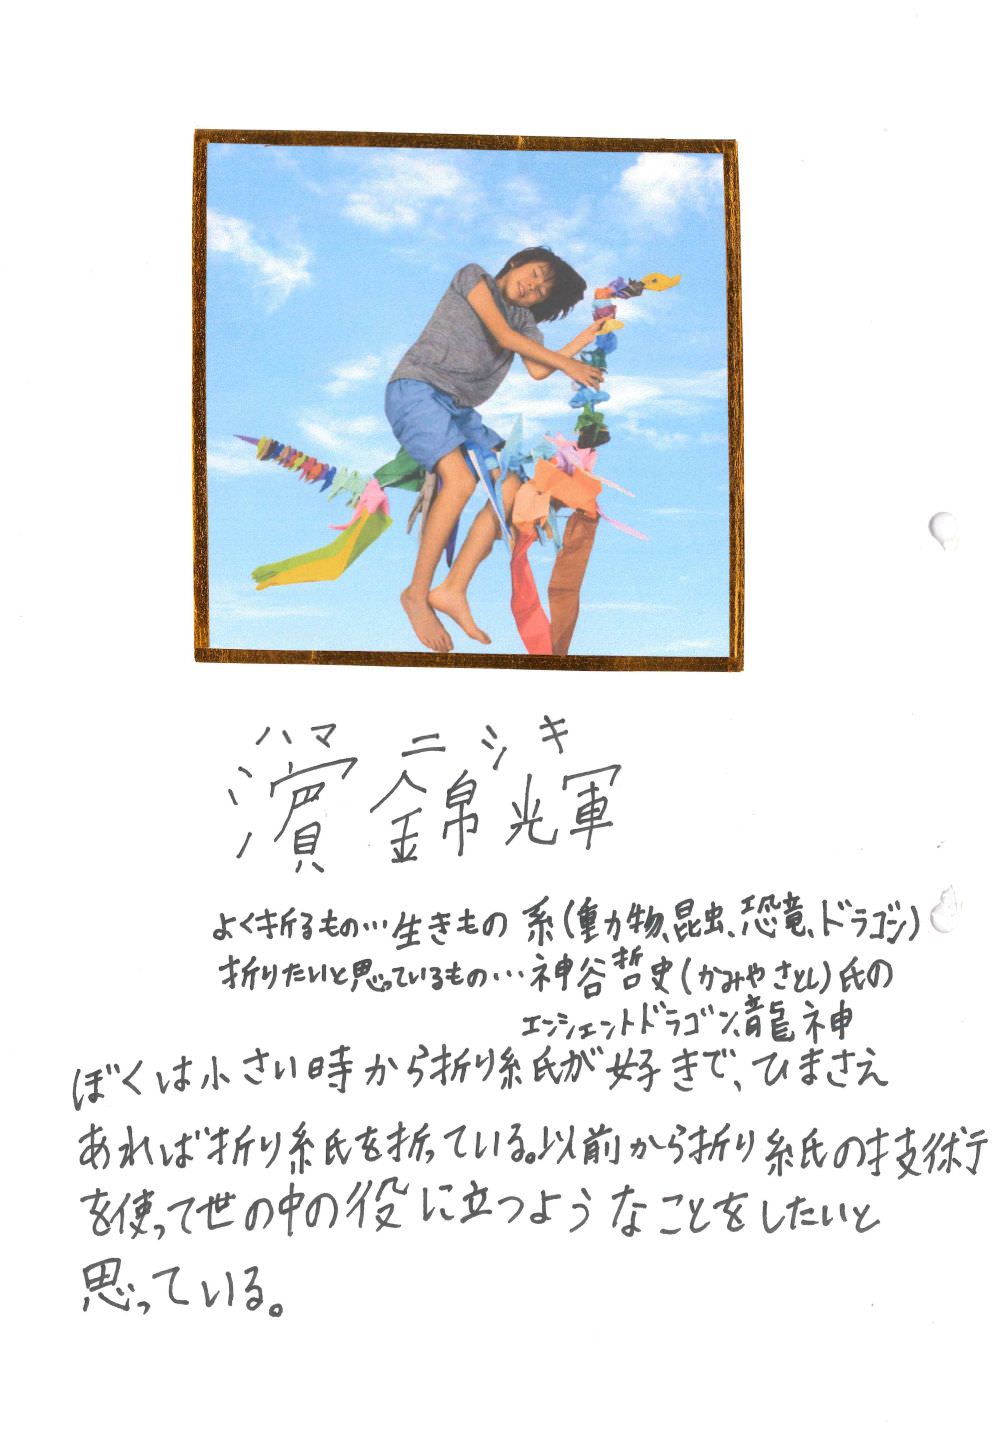 ハマ ニシキ
濱 錦輝
よく折るもの…生きもの系(動物、昆虫、恐竜、ドラゴン)
折りたいと思っているもの…神谷哲史(かみやさとし)氏の
エンシェントドラゴン、龍神
ぼくは小さい時から折り紙が好きで、ひまさえ
あれば折り紙を折っている。以前から折り紙の技術
を使って世の中の役に立つようなことをしたいと
思っている。